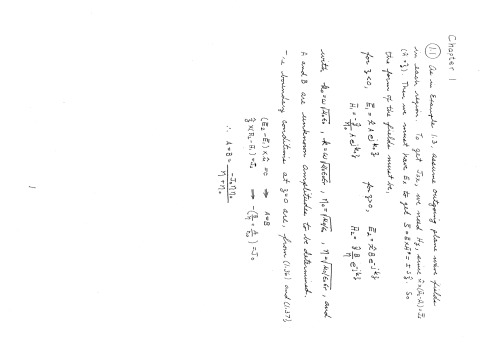 Chapter 1
1.1 As in Example 1.3, assume outgoing plane wave fields
in each region. To get Jsx, we need Hy, since ẑ×(H₂-H₁)=J̄s
(n̂=ẑ). Then we must have Ex to get S̄=Ē×H̄*=±Sẑ. So
the form of the fields must be,
for z<0, Ē₁=x̂Ae^{jk₀z} for z>0, Ē₂=x̂Be^{-jkz}
H̄₁=-ŷ A/η₀ e^{jk₀z} H̄₂=ŷ B/η e^{-jkz}
with k₀=ω√μ₀ε₀, k=ω√μ₀ε₀εr, η₀=√μ₀/ε₀, η=√μ₀/ε₀εr, and
A and B are unknown amplitudes to be determined.
The boundary conditions at z=0 are, from (1.36) and (1.37),
(Ē₂-Ē₁)×n̂=0 ⇒ A=B
ẑ×(H̄₂-H̄₁)=J̄s ⇒ -(B/η+A/η₀)=J₀
∴ A=B=-J₀ηη₀/η+η₀
1